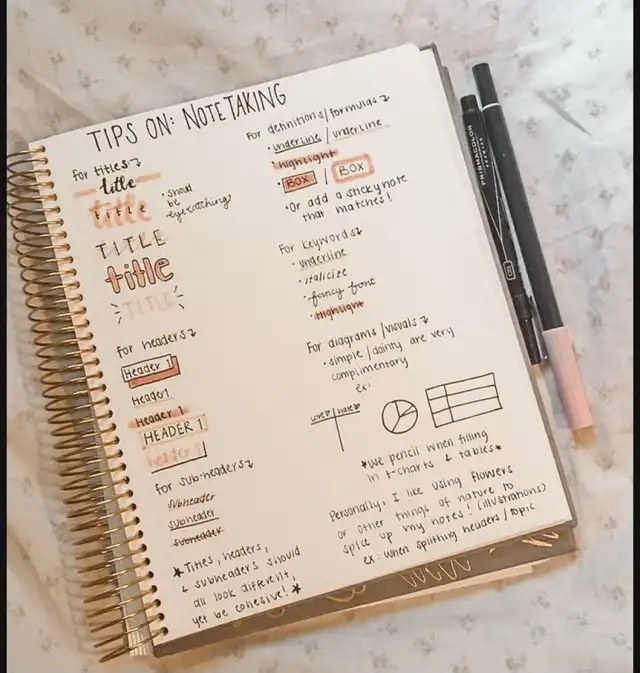 TIPS ON: NOTE TAKING
For titles
title
title
TITLE
title
TITLE
• should
be
eye catching
For headers
Header 1
Header 1
Header 1
HEADER 1
Header 1
For sub-headers
Subheader
subheader
subheader
★ Titles, headers,
subheaders should
all look different,
yet be cohesive! ★
For definitions/formulas
• underline / underline
• highlight
• BOX / BOX
• Or add a stickynote
that matches!
For keywords
• underline
• italicize
• fancy font
• Highlight
For diagrams/visuals
• simple/dainty are very
complimentary
ex:
love it / hate it
*use pencil when filling
in t-charts & tables*
Personally, I like using flowers
or other things of nature to
splice up my notes! (illustrations)
ex: when splitting headers/topic
PRISMACOLOR